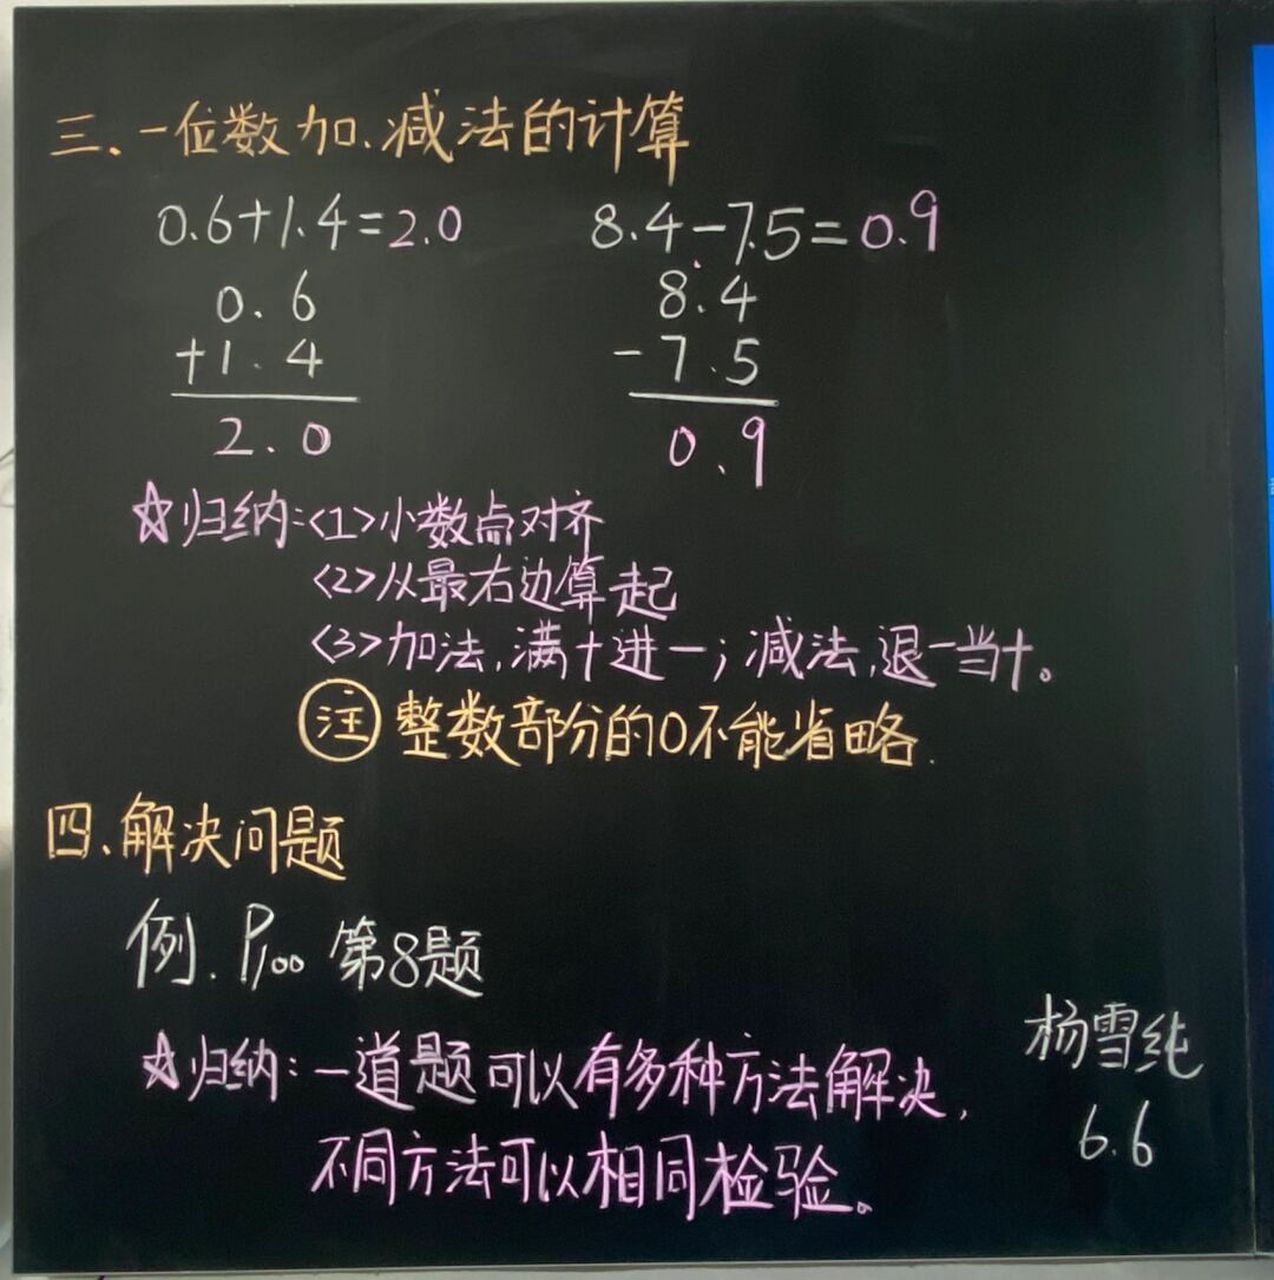 三、一位数加、减法的计算
0.6+1.4=2.0 8.4-7.5=0.9
0.6 8.4
+1.4 -7.5
2.0 0.9
☆归纳:<1>小数点对齐
<2>从最右边算起
<3>加法,满十进一;减法,退一当十。
注 整数部分的0不能省略.
四、解决问题
例. P100 第8题
☆归纳:一道题可以有多种方法解决,
不同方法可以相同检验。
杨雪纯
6.6